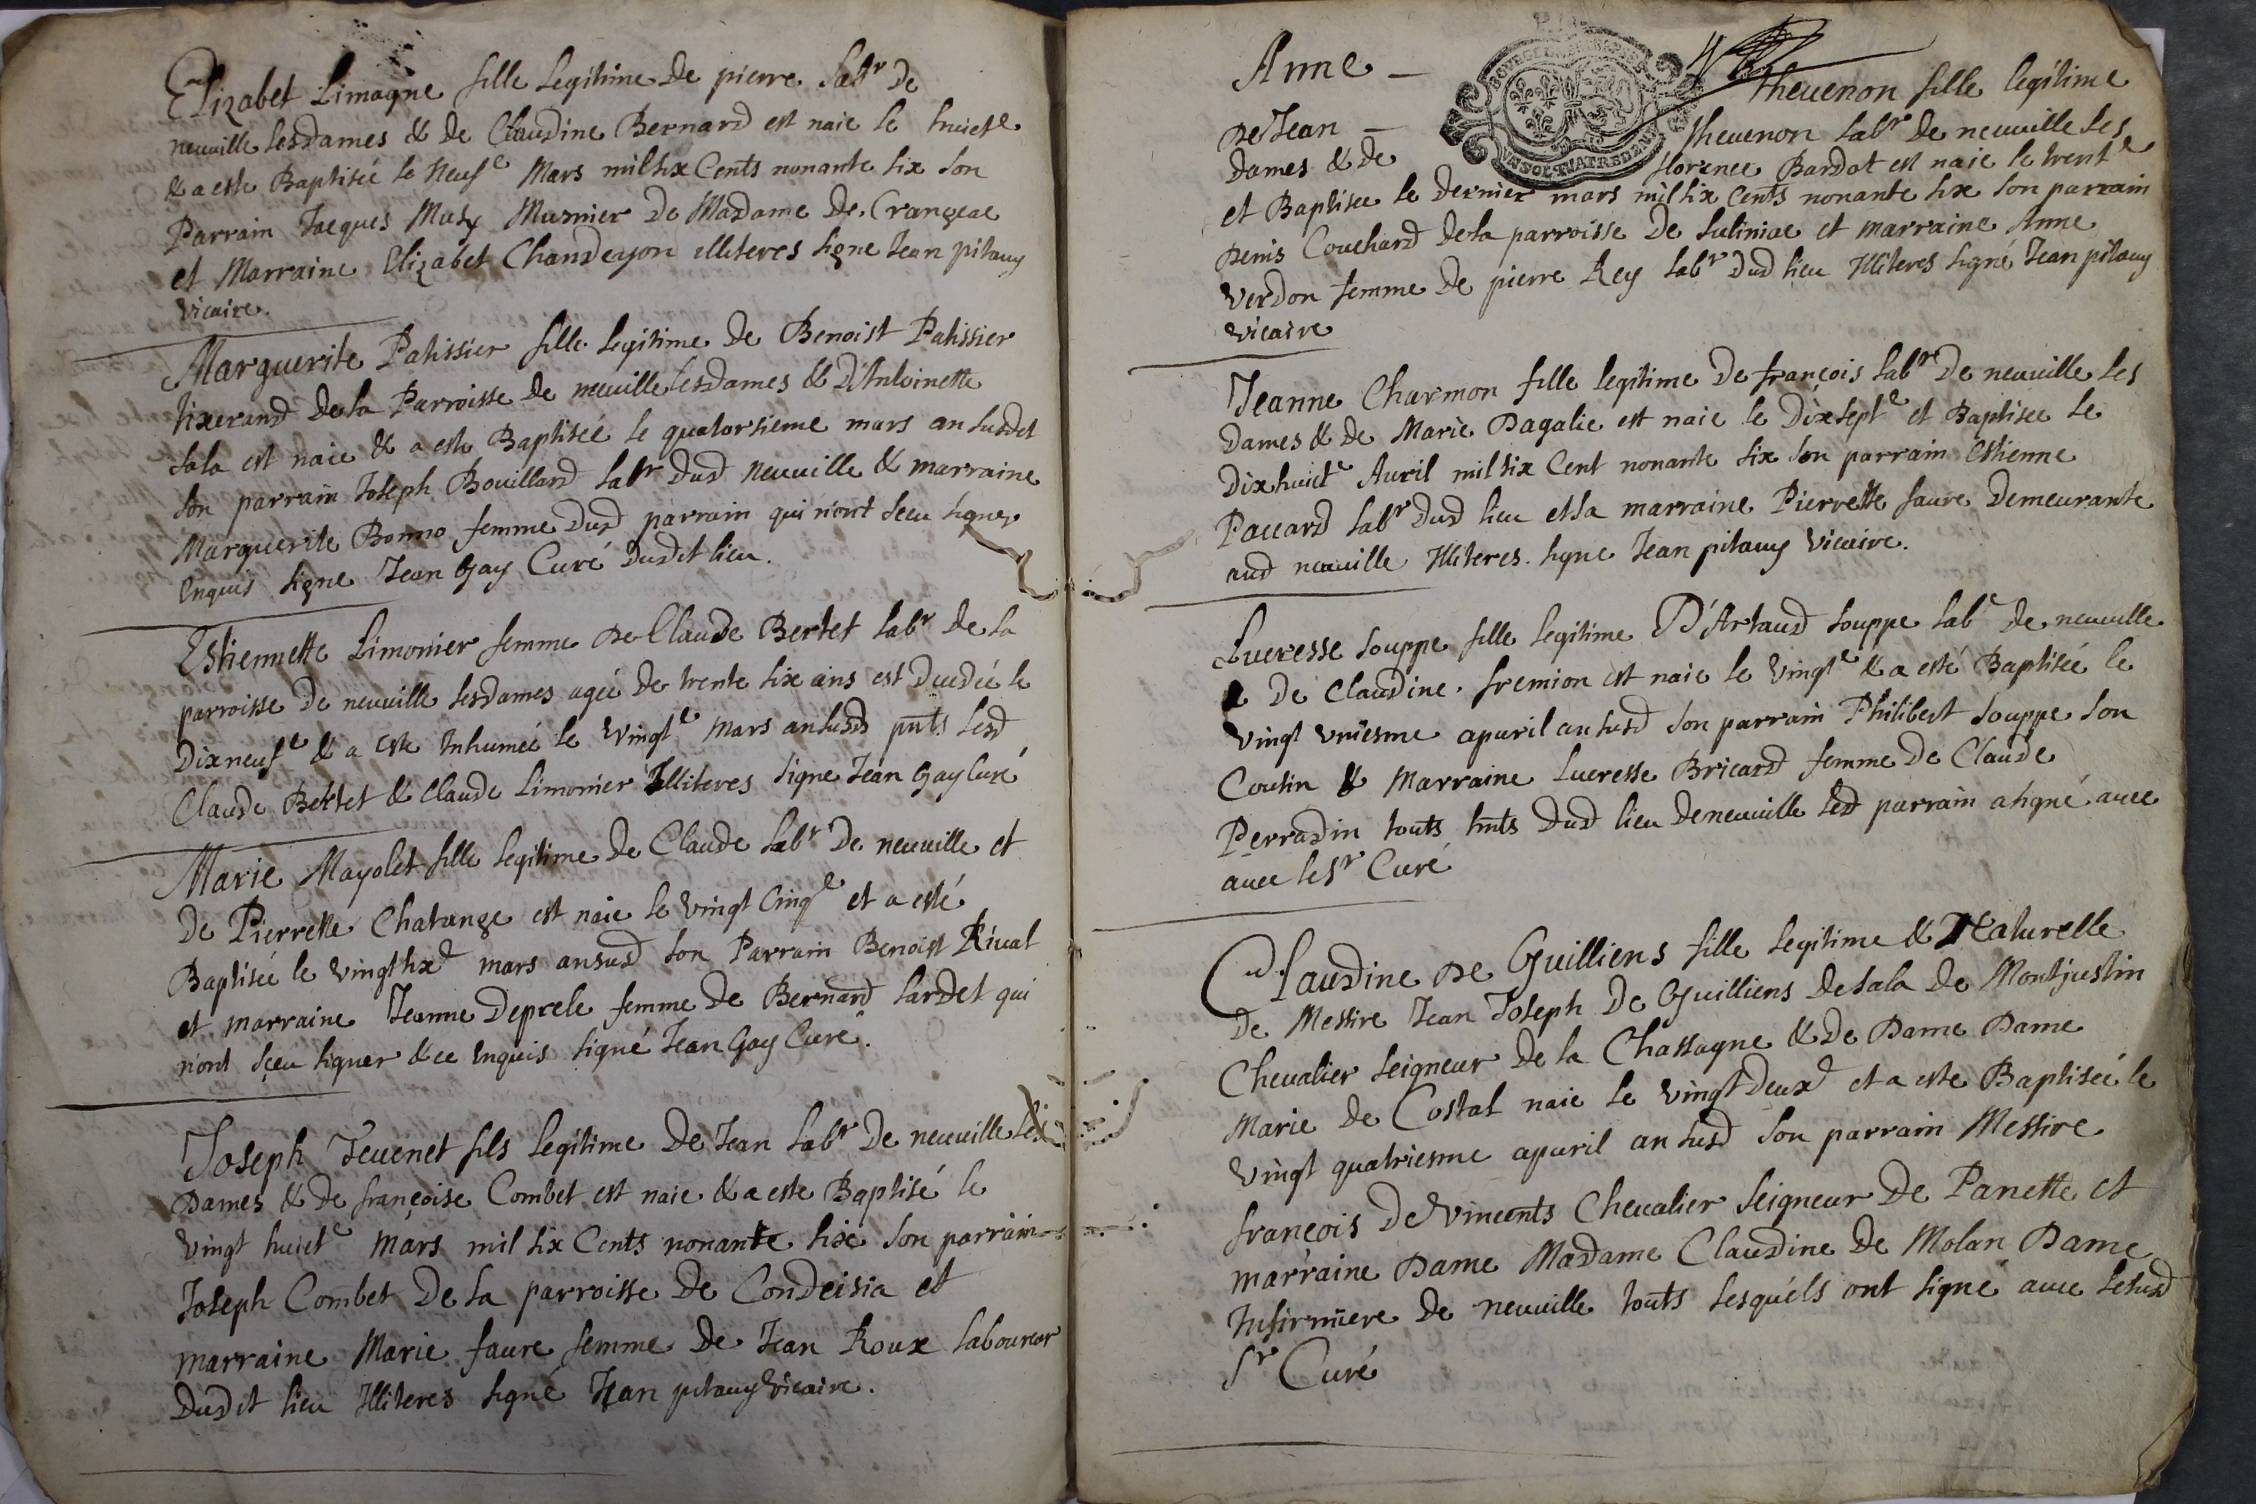 Elizabet Limagne fille legitime de pierre labr de
neuville lesdames & de Claudine Bernard est naie le huicte
& a este Baptisée le neufe Mars mil six Cents nonante six son
Parrain Jacques Musy Musnier de Madame de Crangeac
et Marraine Elizabet Chandeyon illiteres signe Jean pitauy
vicaire.
Marguerite Patissier fille legitime de Benoist Patissier
tixerand de la Parroisse de neuville lesdames & d'Antoinette
Sala est naie & a este Baptisée le quatorsieme mars an susdt
son parrain Joseph Bouillard labr dud neuville & marraine
Marguerite Bonno femme dud parrain qui n'ont sceu signer
Enquis signe Jean Gay Curé dudit lieu.
Estiennette Limonier femme de Claude Bertet labr de la
parroisse de neuville lesdames ageé de trente six ans est decedeé le
dixneufe & a este Inhumeé le vingte mars an susd pnts lesd
Claude Bertet & Claude Limonier Illiteres signe Jean Gay Curé
Marie Mayolet fille legitime de Claude labr de neuville et
de Pierrette Chatange est naie le vingt Cinqe et a esté
Baptisée le vingt sixe mars an susd son Parrain Benoist Rivat
et marraine Jeanne Deprele femme de Bernard Lardet qui
n'ont sçeu signer de ce Enquis signé Jean Gay Curé.
Joseph Tevenet fils legitime de Jean labr de neuville les
Dames & de françoise Combet est naie & a este Baptisé le
vingt huicte mars mil six Cents nonante six son parrain
Joseph Combet de la parroisse de Condeisia et
marraine Marie faure femme de Jean Roux laboureor
dudit lieu Illiteres signé Jean pitauy vicaire.
Anne — Thevenon fille legitime
de Jean — thevenon labr de neuville les
Dames & de florence Bardot est naie le trente
et Baptisee le dernier mars mil six Cents nonante six son parrain
Denis Couchard de la parroisse de suliniac et marraine Anne
verdon femme de pierre Rey labr dud lieu Illiteres signé Jean pitauy
vicaire
Jeanne Charmon fille legitime de françois labr de neuville les
Dames & de Marie Dagalie est naie le dixsepte et Baptisee le
dixhuicte Avril mil six Cent nonante six son parrain Estienne
Paccard labr dud lieu et sa marraine Pierrette faure demeurante
aud neuville Illiteres. signe Jean pitauy vicaire.
Lucresse souppe fille legitime D'Artaud souppe labr de neuville
& de Claudine fremion est naie le vingte & a esté Baptiseé le
vingt vniesme apuril an susd son parrain Philibert souppe son
Cousin & Marraine Lucresse Bricard femme de Claude
Perradin touts hnts dud lieu de neuville led parrain a signé avec
avec le Sr Curé
Claudine de Guilliens fille legitime & Naturelle
de Messire Jean Joseph de Guilliens de sala de Montjustin
Chevalier seigneur de la Chassagne & de Dame Dame
Marie de Costat naie le vingt deuxe et a este Baptiseé le
vingt quatriesme apuril an susd son parrain Messire
françois de vincents Chevalier seigneur de Panette et
marraine Dame Madame Claudine de Molan Dame
Infirmiere de neuville touts lesquels ont signé avec le susd
Sr Curé